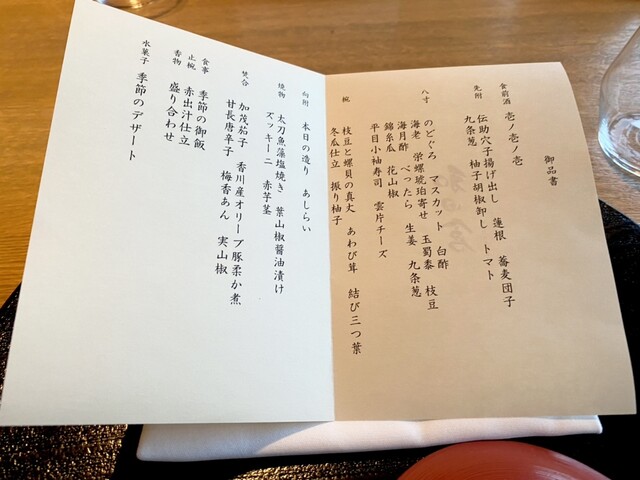 御品書
食前酒 壱ノ壱ノ壱
先附 伝助穴子揚げ出し 蓮根 蕎麦団子
九条葱 柚子胡椒卸し トマト
八寸 のどぐろ マスカット 白酢
海老 栄螺琥珀寄せ 玉蜀黍 枝豆
海月酢 べったら 生姜 九条葱
錦糸瓜 花山椒
平目小袖寿司 雲片チーズ
椀 枝豆と螺貝の真丈 あわび茸 結び三つ葉
冬瓜仕立 振り柚子
向附 本日の造り あしらい
焼物 太刀魚藻塩焼き 葉山椒醤油漬け
ズッキーニ 赤芋茎
焚合 加茂茄子 香川産オリーブ豚柔か煮
甘長唐辛子 梅香あん 実山椒
食事 季節の御飯
止椀 赤出汁仕立
香物 盛り合わせ
水菓子 季節のデザート